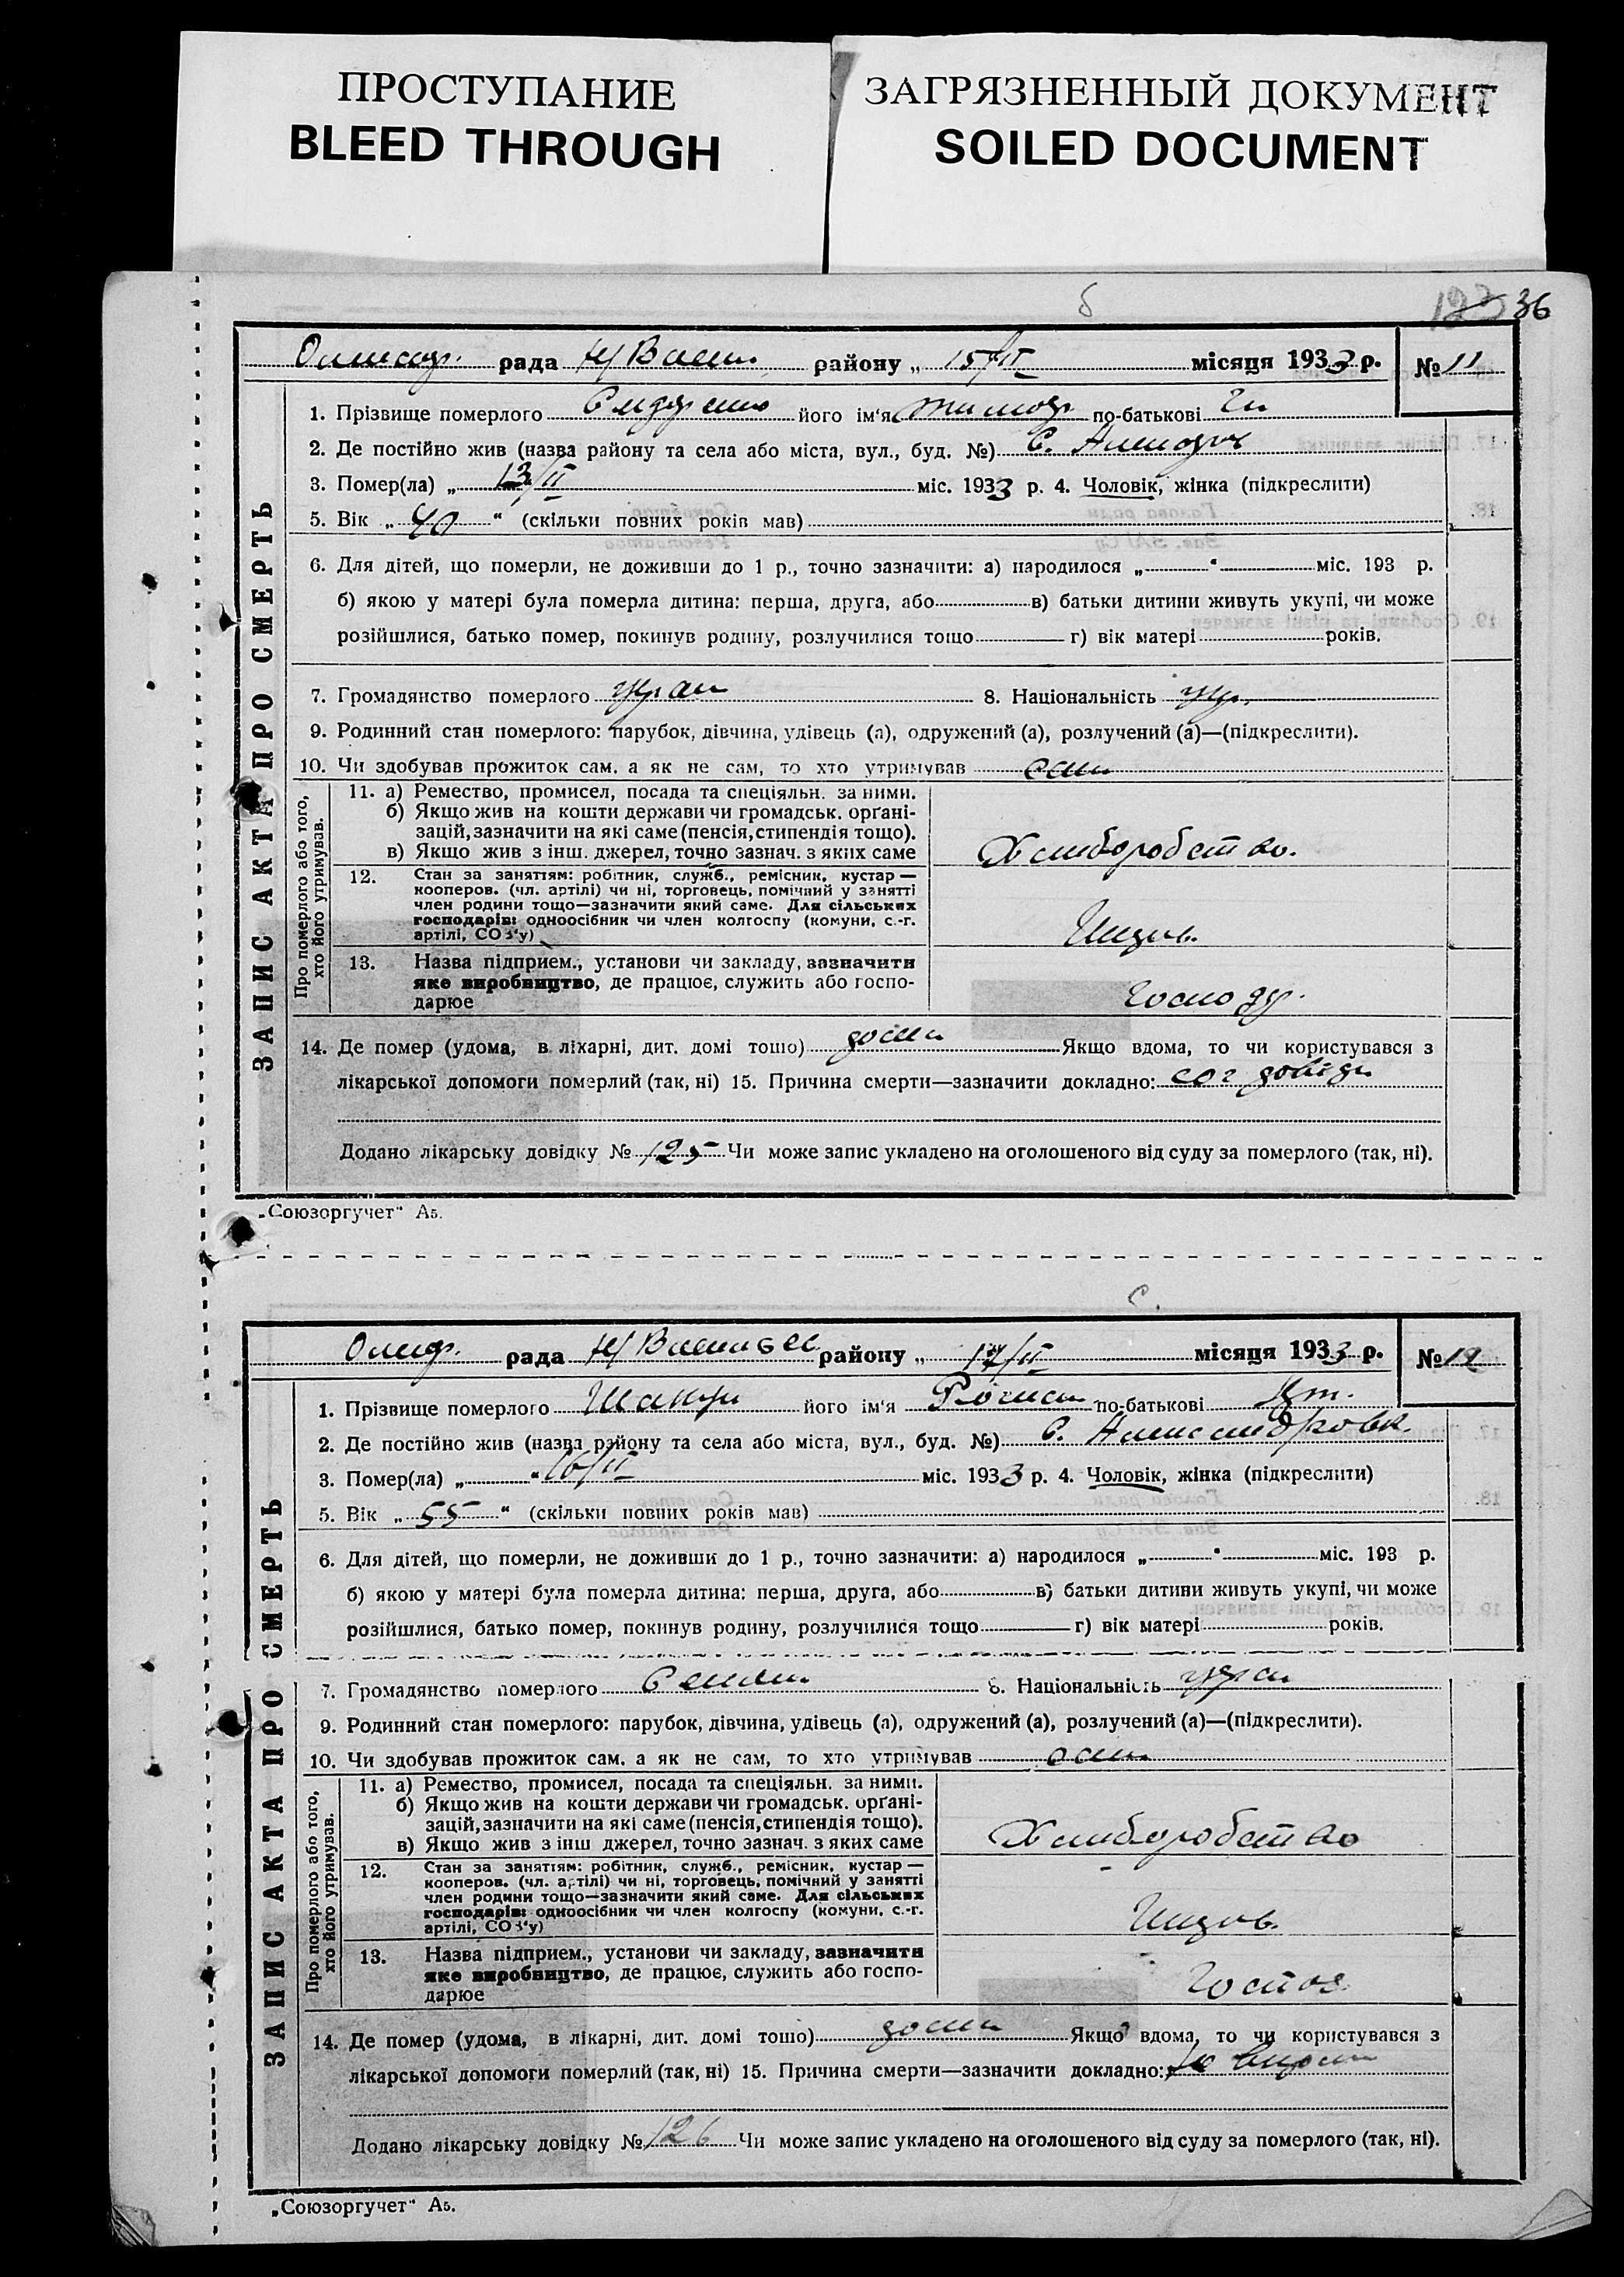 ПРОСТУПАНИЕ
BLEED THROUGH
ЗАГРЯЗНЕННЫЙ ДОКУМЕНТ
SOILED DOCUMENT
36
рада Н/Васил. району „ 15/II місяця 1933 р. № 11
ЗАПИС АКТА ПРО СМЕРТЬ
1. Прізвище померлого його ім'я по-батькові
2. Де постійно жив (назва району та села або міста, вул., буд. №) С.
3. Помер(ла) „ 13/II міс. 1933 р. 4. Чоловік, жінка (підкреслити)
5. Вік „ 40 “ (скільки повних років мав)
6. Для дітей, що померли, не доживши до 1 р., точно зазначити: а) народилося „ “ міс. 193 р.
б) якою у матері була померла дитина: перша, друга, або в) батьки дитини живуть укупі, чи може
розійшлися, батько помер, покинув родину, розлучилися тощо г) вік матері років.
7. Громадянство померлого укр 8. Національність укр.
9. Родинний стан померлого: парубок, дівчина, удівець (а), одружений (а), розлучений (а)—(підкреслити).
10. Чи здобував прожиток сам. а як не сам, то хто утримував сам
Про померлого або того, хто його утримував.
11. а) Ремество, промисел, посада та спеціяльн. за ними.
б) Якщо жив на кошти держави чи громадськ. орґані-
зацій, зазначити на які саме (пенсія, стипендія тощо).
в) Якщо жив з інш. джерел, точно зазнач. з яких саме
Хлиборобство.
12. Стан за заняттям: робітник, служб., ремісник, кустар —
кооперов. (чл. артілі) чи ні, торговець, помічний у занятті
член родини тощо—зазначити який саме. Для сільських
господарів: одноосібник чи член колгоспу (комуни, с.-г.
артілі, СОЗ'у)
13. Назва підприєм., установи чи закладу, зазначити
яке виробництво, де працює, служить або госпо-
дарює
Господар.
14. Де помер (удома, в лікарні, дит. домі тошо) дома Якщо вдома, то чи користувався з
лікарської допомоги померлий (так, ні) 15. Причина смерти—зазначити докладно:
Додано лікарську довідку № 125 Чи може запис укладено на оголошеного від суду за померлого (так, ні).
„Союзоргучет“ А5.
рада Н/Васильев району „ 17/II місяця 1933 р. № 12
ЗАПИС АКТА ПРО СМЕРТЬ
1. Прізвище померлого його ім'я по-батькові
2. Де постійно жив (назва району та села або міста, вул., буд. №) С. Александровк.
3. Помер(ла) „ “ 16/II міс. 1933 р. 4. Чоловік, жінка (підкреслити)
5. Вік „ 55 “ (скільки повних років мав)
6. Для дітей, що померли, не доживши до 1 р., точно зазначити: а) народилося „ “ міс. 193 р.
б) якою у матері була померла дитина: перша, друга, або в) батьки дитини живуть укупі, чи може
розійшлися, батько помер, покинув родину, розлучилися тощо г) вік матері років.
7. Громадянство померлого 8. Національність укра
9. Родинний стан померлого: парубок, дівчина, удівець (а), одружений (а), розлучений (а)—(підкреслити).
10. Чи здобував прожиток сам. а як не сам, то хто утримував сам
Про померлого або того, хто його утримував.
11. а) Ремество, промисел, посада та спеціяльн. за ними.
б) Якщо жив на кошти держави чи громадськ. орґані-
зацій, зазначити на які саме (пенсія, стипендія тощо).
в) Якщо жив з інш джерел, точно зазнач. з яких саме
Хлиборобство
12. Стан за заняттям: робітник, служб., ремісник, кустар —
кооперов. (чл. артілі) чи ні, торговець, помічний у занятті
член родини тощо—зазначити який саме. Для сільських
господарів: одноосібник чи член колгоспу (комуни, с.-г.
артілі, СОЗ'у)
13. Назва підприєм., установи чи закладу, зазначити
яке виробництво, де працює, служить або госпо-
дарює
14. Де помер (удома, в лікарні, дит. домі тошо) дома Якщо вдома, то чи користувався з
лікарської допомоги померлий (так, ні) 15. Причина смерти—зазначити докладно:
Додано лікарську довідку № 126 Чи може запис укладено на оголошеного від суду за померлого (так, ні).
„Союзоргучет“ А5.